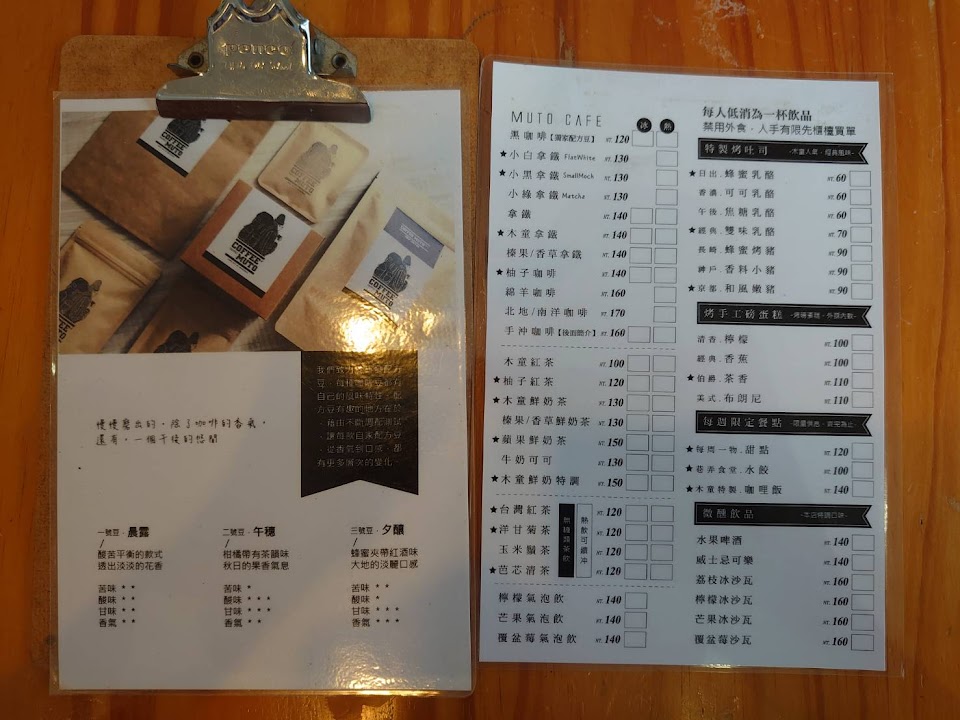 penco
COFFEE
MUTO
COFFEE
MUTO
COFFEE
MUTO
慢慢磨出的，除了咖啡的香氣，
還有，一個午後的悠閒
自己的風味特性，配
方豆有趣的地方在於
，藉由不斷調配測試
，讓每款自家配方豆
，從香氣到口感，都
有更多層次的變化。
一號豆．晨露
酸苦平衡的款式
透出淡淡的花香
苦味 * *
酸味 * *
甘味 * *
香氣 * *
二號豆．午穗
柑橘帶有茶韻味
秋日的果香氣息
苦味 *
酸味 * * *
甘味 * * *
香氣 * *
三號豆．夕釀
蜂蜜夾帶紅酒味
大地的淡麗口感
苦味 * *
酸味 *
甘味 * * *
香氣 * * *
MUTO CAFE 冰 熱
黑咖啡【獨家配方豆】 NT. 120
★小白拿鐵 FlatWhite NT. 130
★小黑拿鐵 SmallMock NT. 130
小綠拿鐵 Matcha NT. 130
拿鐵 NT. 140
★木童拿鐵 NT. 140
榛果/香草拿鐵 NT. 140
★柚子咖啡 NT. 140
綿羊咖啡 NT. 160
北地/南洋咖啡 NT. 170
手沖咖啡【後面簡介】 NT. 160
木童紅茶 NT. 100
★柚子紅茶 NT. 120
★木童鮮奶茶 NT. 130
榛果/香草鮮奶茶 NT. 130
★蘋果鮮奶茶 NT. 150
牛奶可可 NT. 130
★木童鮮奶特調 NT. 150
★台灣紅茶 NT. 120
★洋甘菊茶 NT. 120
玉米鬚茶 NT. 120
★芭芯清茶 NT. 120
無糖類茶飲
熱飲可續沖
檸檬氣泡飲 NT. 140
芒果氣泡飲 NT. 140
覆盆莓氣泡飲 NT. 140
每人低消為一杯飲品
禁用外食，人手有限先櫃檯買單
特製烤吐司 -木童人氣．經典風味-
★日出．蜂蜜乳酪 NT. 60
香濃．可可乳酪 NT. 60
午後．焦糖乳酪 NT. 60
★經典．雙味乳酪 NT. 70
長崎．蜂蜜烤豬 NT. 90
神戶．香料小豬 NT. 90
★京都．和風嫩豬 NT. 90
烤手工磅蛋糕
清香．檸檬 NT. 100
經典．香蕉 NT. 100
★伯爵．茶香 NT. 110
美式．布朗尼 NT. 110
每週限定餐點 -限量供應．售完為止-
★每周一物．甜點 NT. 120
★巷弄食堂．水餃 NT. 100
★木童特製．咖哩飯 NT. 140
微醺飲品 -本店特調口味-
水果啤酒 NT. 140
威士忌可樂 NT. 140
荔枝冰沙瓦 NT. 160
檸檬冰沙瓦 NT. 160
芒果冰沙瓦 NT. 160
覆盆莓沙瓦 NT. 160